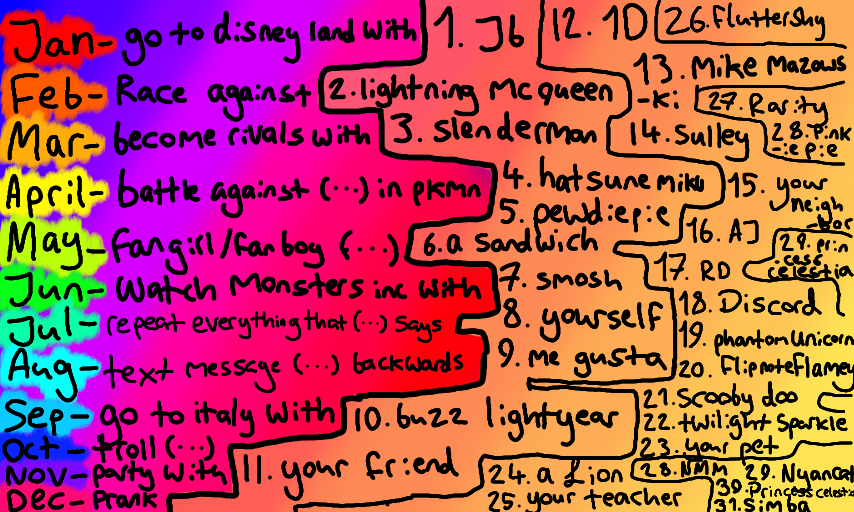 Jan- go to disney land with
Feb- Race against
Mar- become rivals with
April- battle against (...) in pkmn
May- fangirl/fanboy (...)
Jun- Watch Monsters inc with
Jul- repeat everything that (...) says
Aug- text message (...) backwards
Sep- go to italy with
Oct- troll (...)
Nov- party with
Dec- Prank
1. Jb
2. lightning mcqueen
3. slenderman
4. hatsune miku
5. pewdiepie
6. a sandwich
7. smosh
8. yourself
9. me gusta
10. buzz lightyear
11. your friend
12. 1D
13. Mike Mazows
-Ki
14. Sulley
15. your
neigh
-bor
16. AJ
17. RD
18. Discord
19. phantomUnicorn
20. FlipnoteFlamey
21. Scooby doo
22. twilight Sparkle
23. your pet
24. a Lion
25. your teacher
26. Fluttershy
27. Rarity
28. Pink
-ie pie
29. Prin
cess
celestia
28. NMM
29. Nyancat
30. Princess celestia
31. Simba